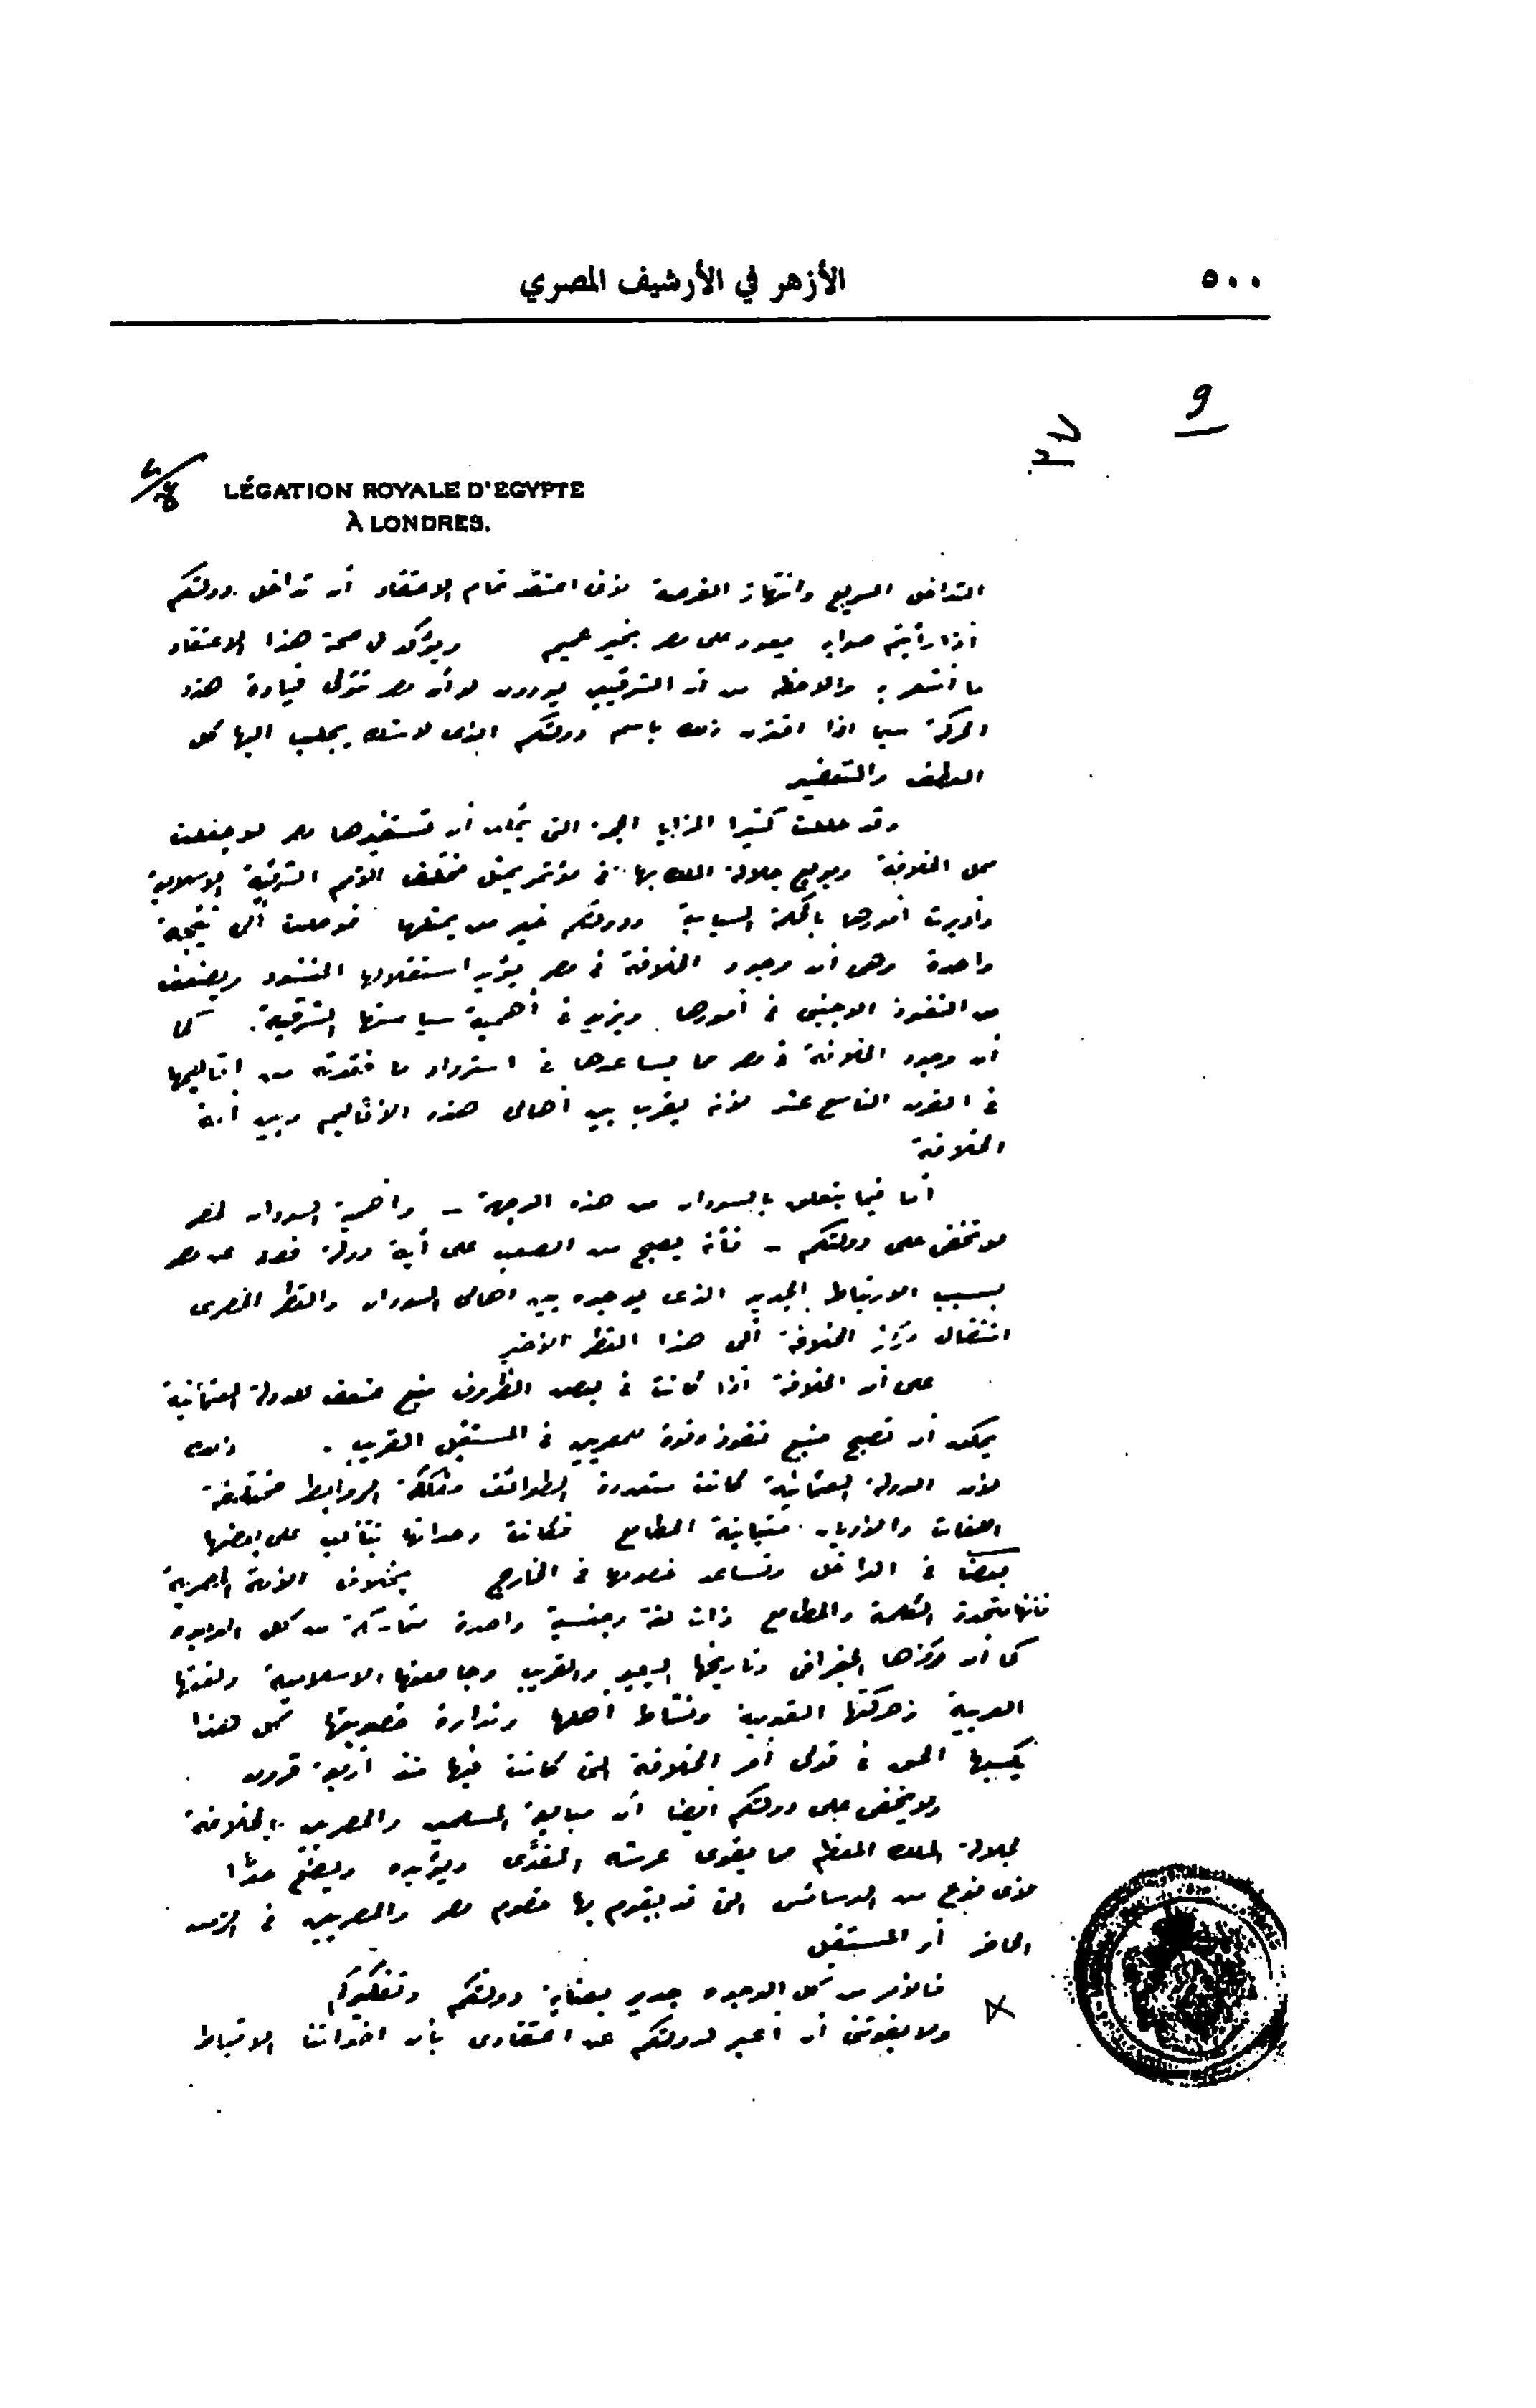 ٥٠٠
الأزهر في الأرشيف المصري
9
LÉGATION ROYALE D'EGYPTE
À LONDRES.
التداخل السريع وانتهاز الفرصة لأنى اعتقد تمام الاعتقاد أن تداخل دولتكم
اذا رأيتم صوابه سيعود على مصر بخير عميم ويؤكد لى صحة هذا الاعتقاد
ما أشعر به والاحظه من أن الشرقيين يودون لو أن مصر تتولى قيادة هذه
الحركة سيما اذا اقترن ذلك باسم دولتكم الذى لا شك يجلب اليها كل
العطف والتعضيد
وقد عللت كثيرا المزايا الجمة التى يمكن أن تستفيدها مصر لو جعلت
محل الخلافة وبويع جلالة الملك بها فى مؤتمر يمثل مختلف الأمم الشرقية الاسلامية
وأديرت أمورها بالحكمة السياسية ودولتكم خير من يمثلها فوصلت الى نتيجة
واحدة وهى أن وجود الخلافة فى مصر يؤيد استقلالها المنشود ويضعف
من النفوذ الاجنبى فى أمورها ويزيد فى أهمية سياستها الشرقية. كما
أن وجود الخلافة فى مصر مما يساعدها فى استرداد ما فقدته من اقاليمها
فى القرن التاسع عشر لأنه يقرب بين أهالى هذه الأقاليم وبين أمة
الخلافة
أما فيما يتعلق بالسودان من هذه الوجهة – وأهمية السودان لمصر
لا تخفى على دولتكم – فأنه يصبح من الصعب على أية دولة فصله عن مصر
بسبب الارتباط الجديد الذى يوجده بين اهالى السودان والقطر المصرى
انتقال مركز الخلافة الى هذا القطر الأخير
على أن الخلافة اذا كانت فى بعض الظروف منبع ضعف للدولة العثمانية
يمكن أن تصبح منبع نفوذ وقوة للمصريين فى المستقبل القريب. وذلك
لأن الدولة العثمانية كانت متعددة الطوائف مفككة الروابط مختلفة
اللغات والأديان متباينة المطامع فكانت وحداتها تتألب على بعضها
بعضا فى الداخل وتساعد خصومها فى الخارج بخلاف الأمة المصرية
فانها متحدة الكلمة والمطامع ذات لغة وجنسية واحدة متماسكة من كل الوجوه
كما أن مركزها الجغرافى وتاريخها البعيد والقريب وجامعتها الاسلامية ولغتها
العربية وحركتها القومية ونشاط أهلها خصوبتها كل هذا
يكسبها الحق فى تولى أمر الخلافة التى كانت فيها منذ أربعة قرون
ولا يخفى على دولتكم أيضا أن مبايعة المسلمين والمصريين بالخلافة
لجلالة الملك المعظم مما يقوى عرشه المفدى ويؤيده ويضع حدا
لأى نوع من الدسائس التى قد يقوم بها خصوم مصر والمصريين فى الزمن
الحاضر أو المستقبل
فالأمر من كل الوجوه جدير بعناية دولتكم وتفكيركم
ولا يفوتنى أن أعبر لدولتكم عن اعتقادى بأن اخواننا الاقباط